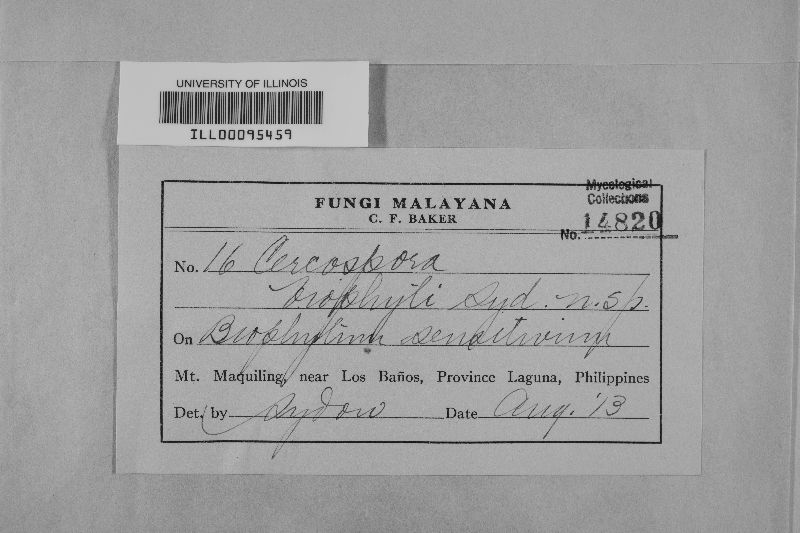 UNIVERSITY OF ILLINOIS
ILL00095459
Mycological
Collections
No. 14820
FUNGI MALAYANA
C. F. BAKER
No. 16 Cercospora
biophyti Syd. n. sp.
On Biophytum sensitivum
Mt. Maquiling, near Los Baños, Province Laguna, Philippines
Det. by Sydow Date Aug. '13